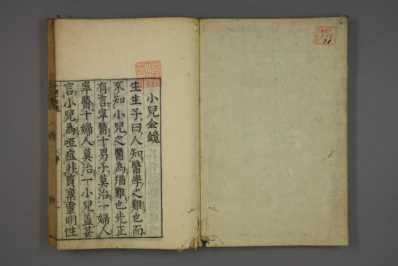 小兒金鏡
生生子曰人知醫學之難也而
不知小兒之醫為猶難也先正
有言寧醫十男子莫治一婦人
寧醫十婦人莫治一小兒蓋甚
言小兒為啞症非質稟靈明性